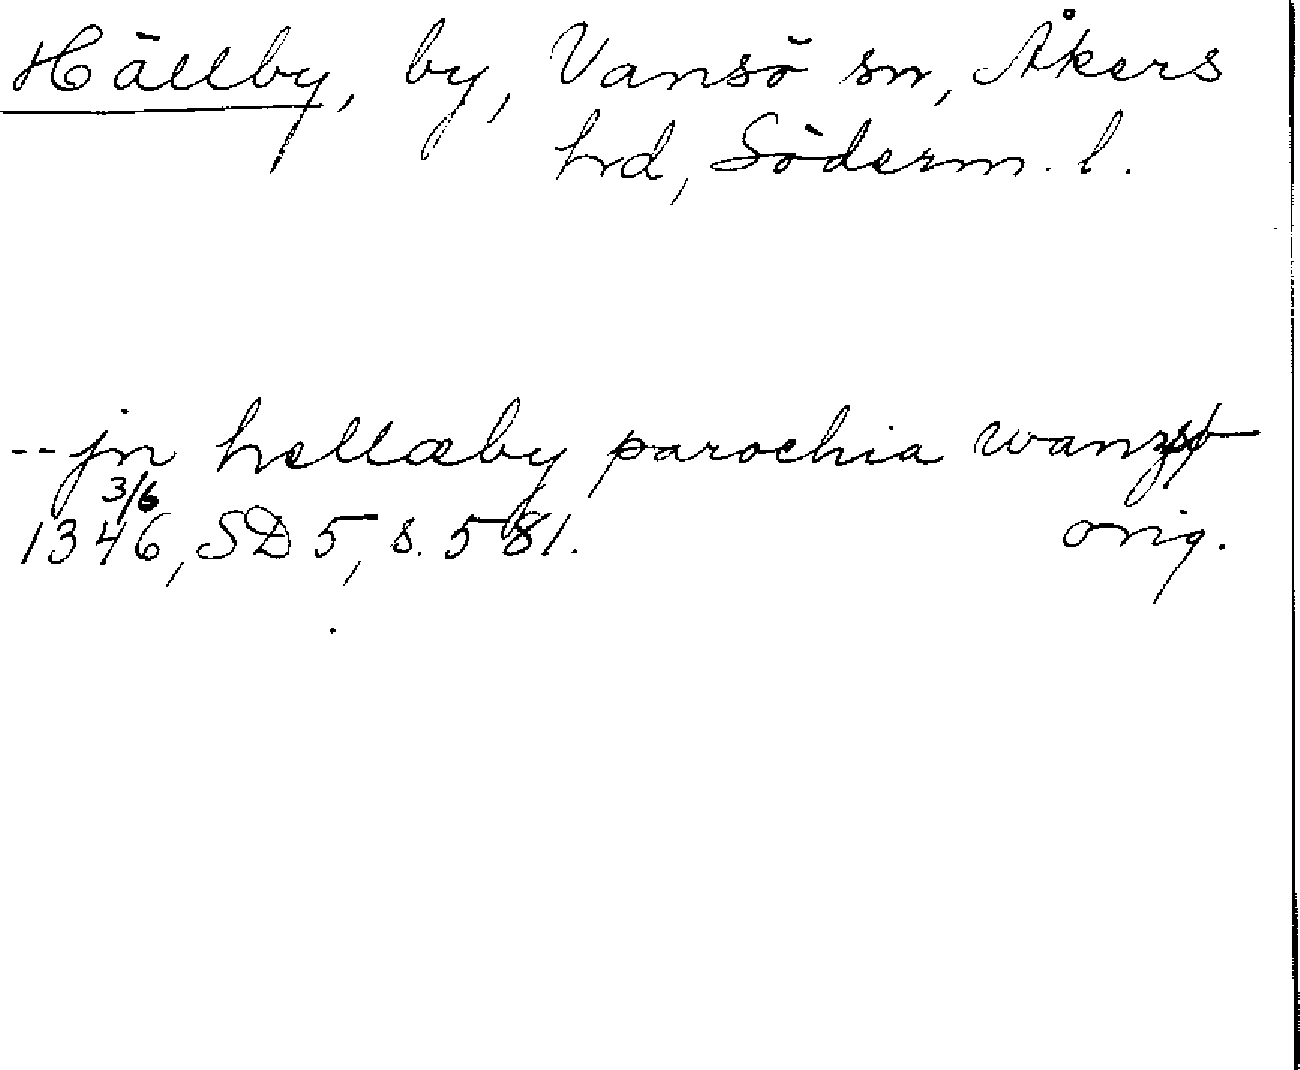 Hällby, by, Vansö sn, Åkers
hrd, Söderm. l.
-- jn hellæby parochia wanzsø
3/6
1346, SD 5, s. 581. orig.